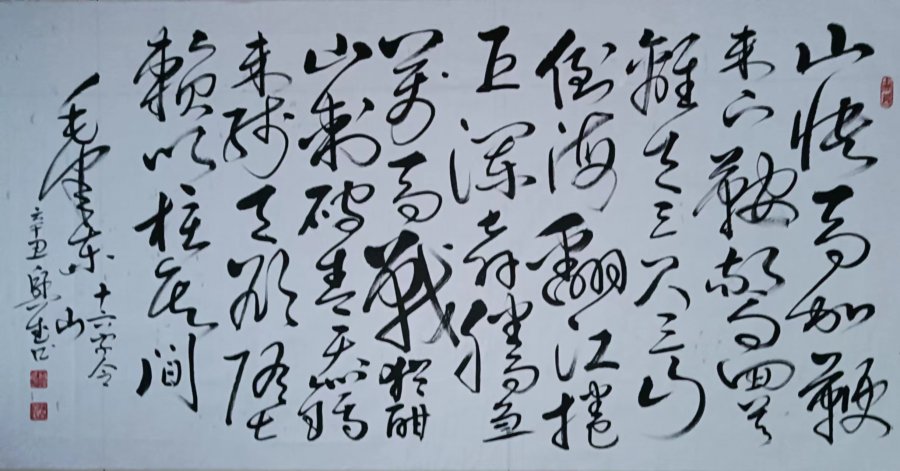 山快马加鞭
未下鞍惊回首
離天三尺三山
倒海翻江捲
巨澜奔腾急
万马战犹酣
山刺破青天锷
未残天欲堕
赖以柱其间
毛泽东十六字令
山
辛丑